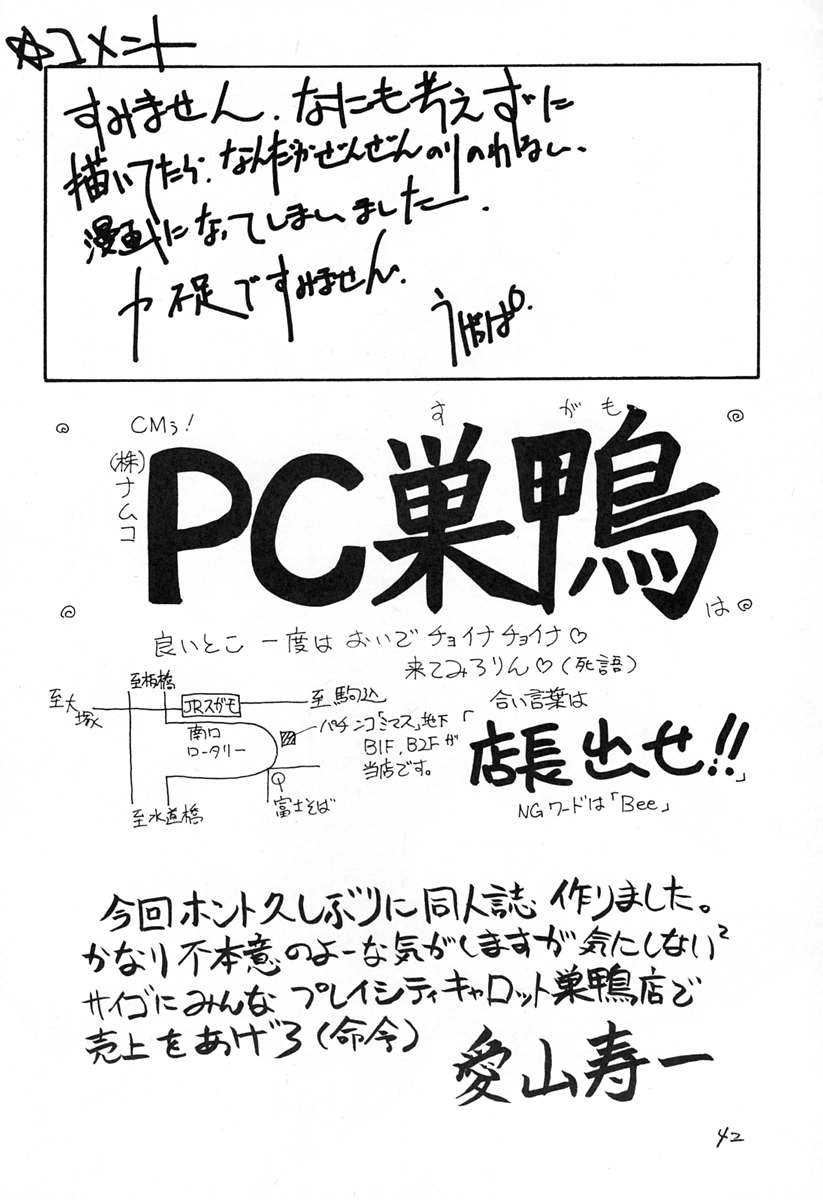 ☆コメント
すみません、なにも考えずに
描いてたら、なんだかぜんぜんのりのわるい、
漫画になってしまいました。
力不足ですみません。
CMぅ!
(株)ナムコ
すがも
PC巣鴨
は
良いとこ 一度は おいで チョイナ チョイナ♡
来てみろりん♡(死語)
至大塚
至板橋
JRスがも
至 駒込
南口
ロータリー
パチンコ「ミマス」地下
B1F, B2Fが
当店です。
富士そば
至水道橋
合い言葉は
「店長出せ!!」
NGワードは「Bee」
今回ホント久しぶりに同人誌 作りました。
かなり不本意のよーな気がしますが気にしない²
サイゴにみんな プレイシティキャロット巣鴨店で
売上をあげろ(命令)
愛山寿一
42